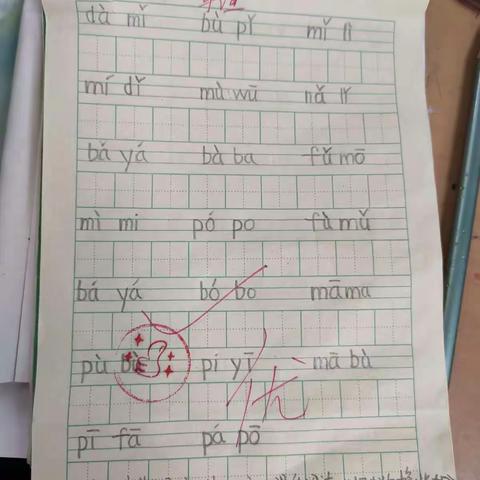 dà mǐ bù pǐ mǐ lì
mí dǐ mù wū nǎ lǐ
bǎ yá bà ba fǔ mō
mì mi pó po fù mǔ
bá yá bó bo māma
pù pí yī mā bù
pī fā pá pō
优